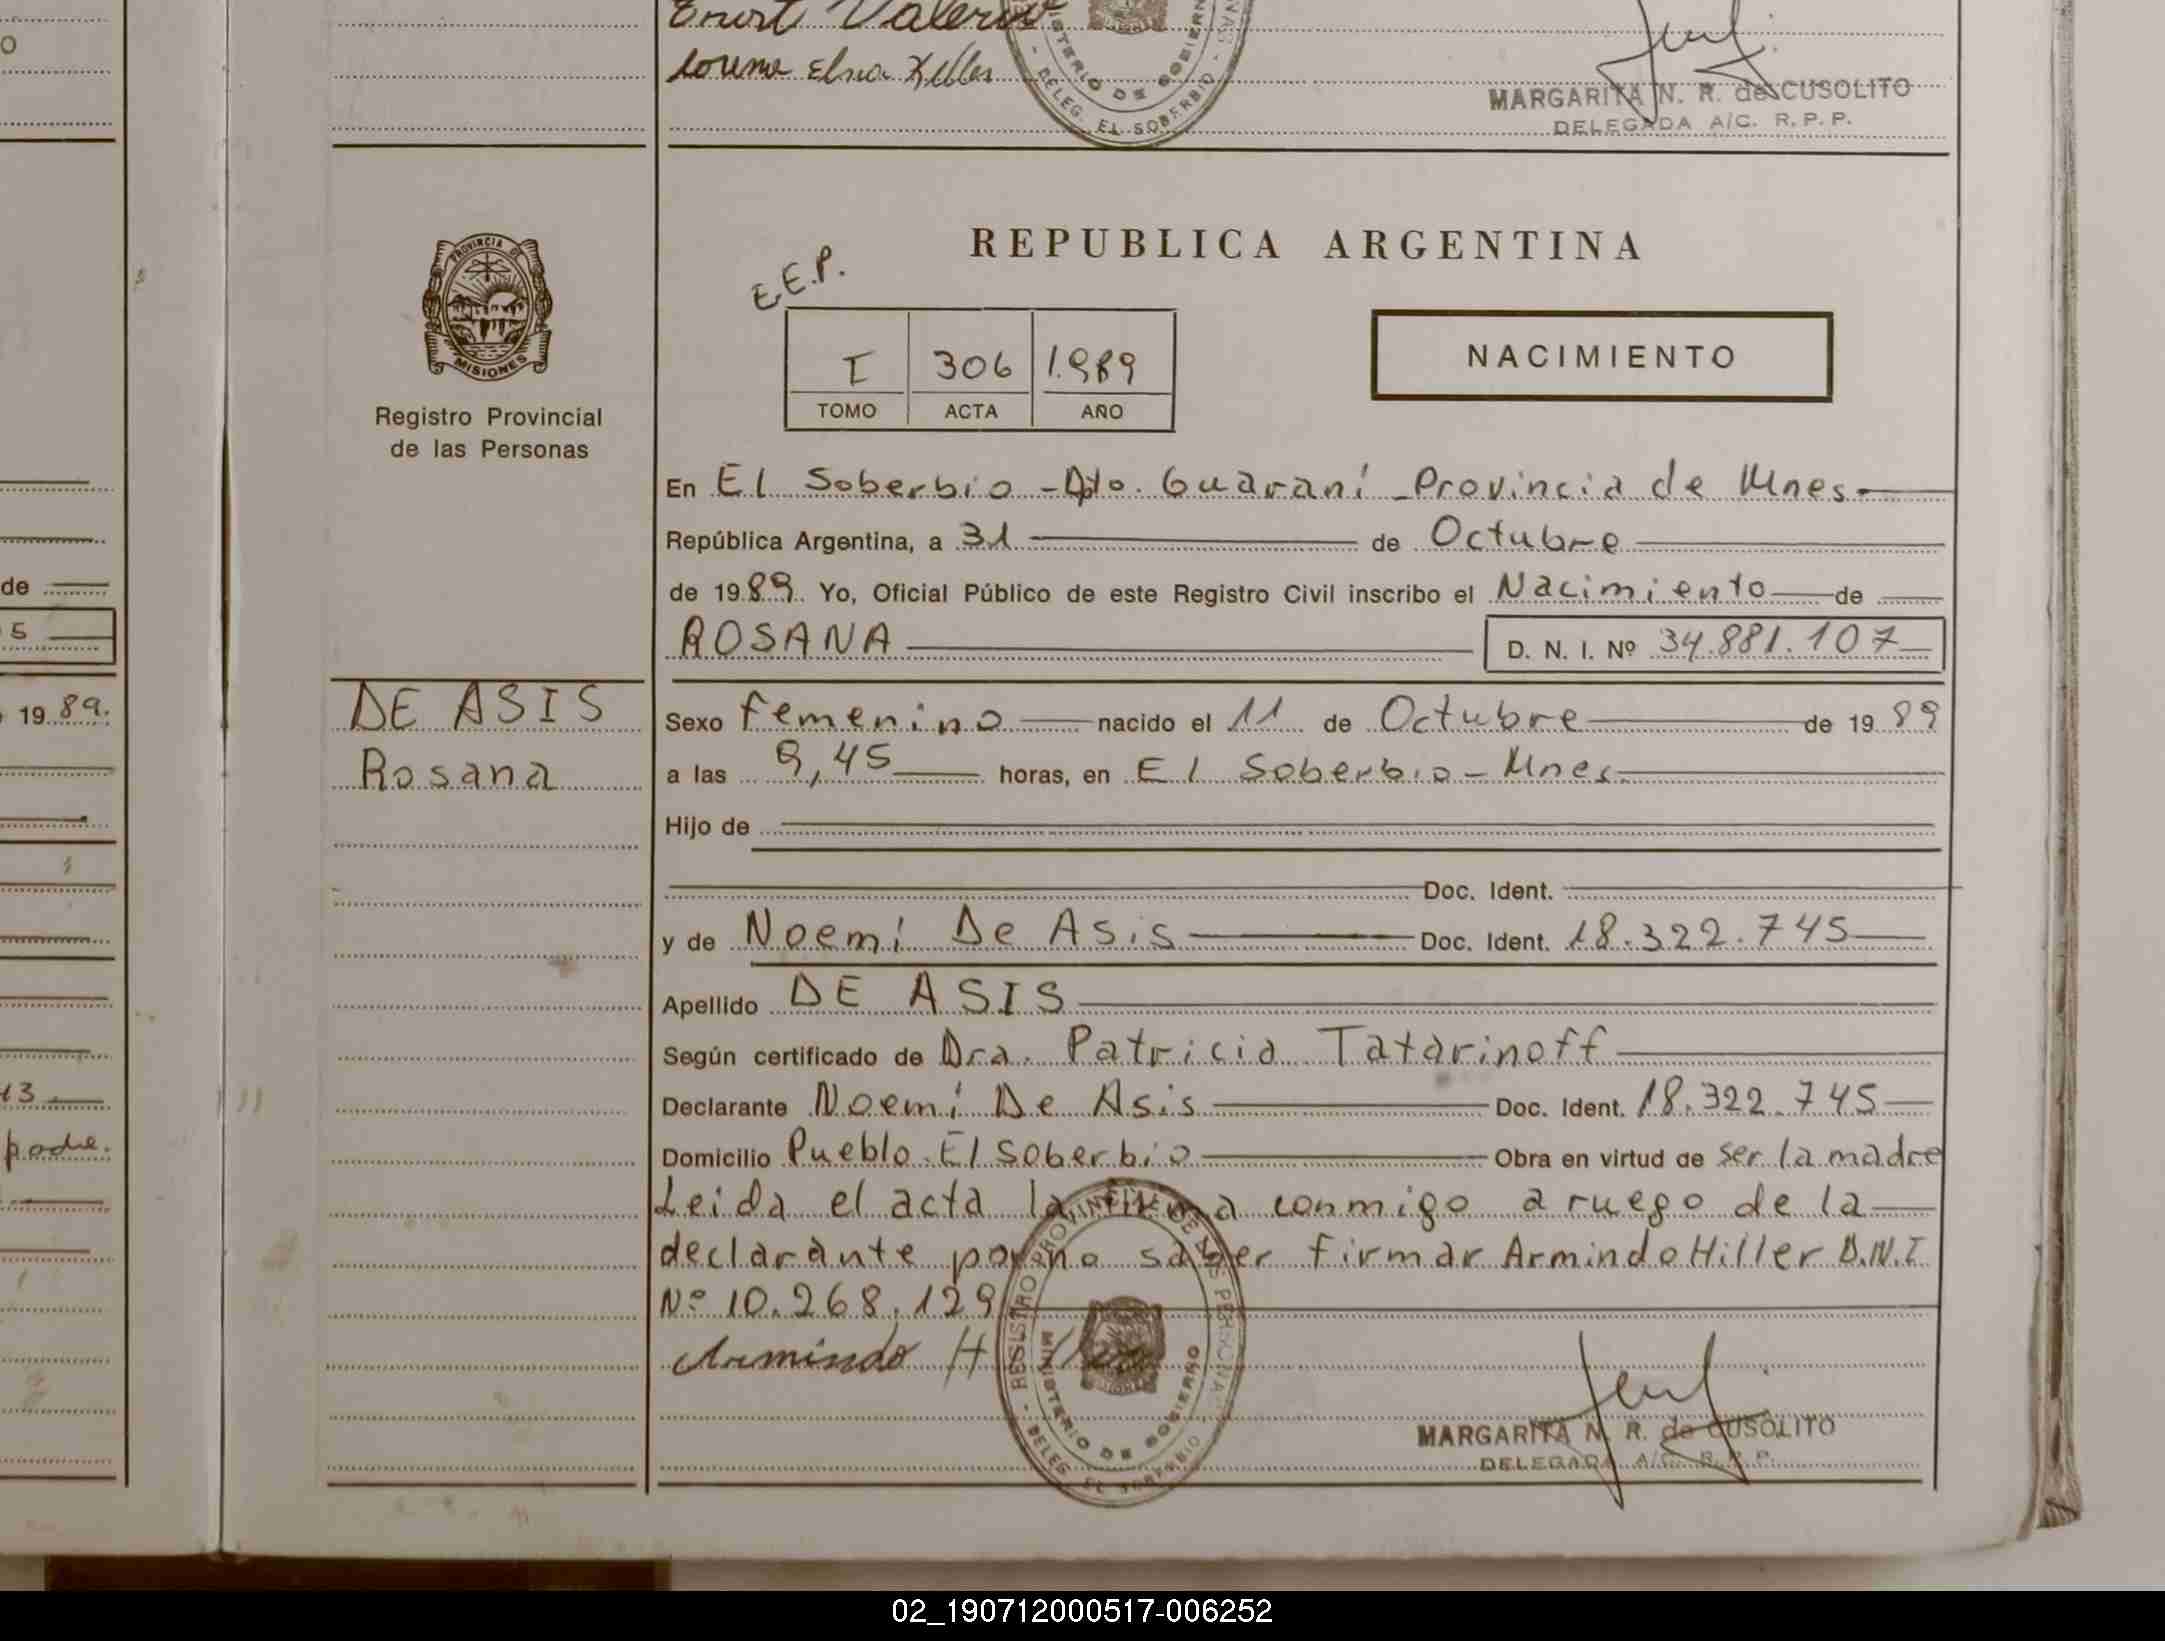 Lorena Elsa Keller
MARGARITA N. R. de CUSOLITO
DELEGADA A/C. R.P.P.
DELEG. EL SOBERBIO
MINISTERIO DE GOBIERNO
PROVINCIA DE
MISIONES
Registro Provincial
de las Personas
REPUBLICA ARGENTINA
E.E.P.
I 306 1.989
TOMO ACTA AÑO
NACIMIENTO
En El Soberbio - Dpto. Guaraní - Provincia de Mnes.
República Argentina, a 31 de Octubre
de 1989. Yo, Oficial Público de este Registro Civil inscribo el Nacimiento de
ROSANA D. N. I. Nº 34.881.107
DE ASIS
Rosana
Sexo Femenino nacido el 11 de Octubre de 1989
a las 9,45 horas, en El Soberbio - Mnes.
Hijo de
Doc. Ident.
y de Noemí De Asis Doc. Ident. 18.322.745
Apellido DE ASIS
Según certificado de Dra. Patricia Tatarinoff
Declarante Noemí De Asis Doc. Ident. 18.322.745
Domicilio Pueblo El Soberbio Obra en virtud de ser la madre
Leida el acta la firma conmigo a ruego de la
declarante por no saber firmar Armindo Hiller D.N.I.
Nº 10.268.129
Armindo H
REGISTRO PROVINCIAL DE LAS PERSONAS
MINISTERIO DE GOBIERNO
DELEG. EL SOBERBIO
MARGARITA N. R. de CUSOLITO
DELEGADA A/C. R.P.P.
de
5
1989.
13
padre.
02_190712000517-006252